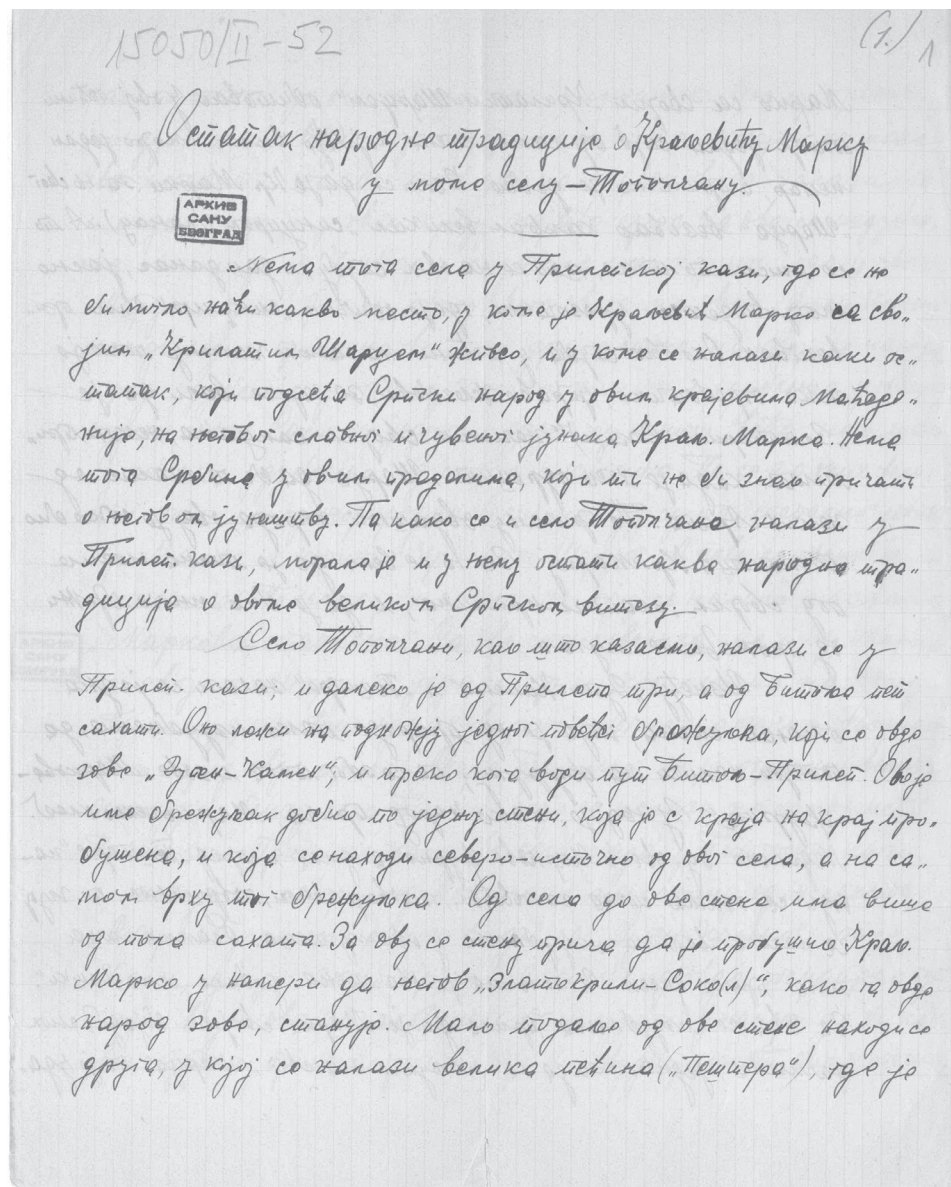 15050/II-52
(1.) 1
Остатак народне традиције о Краљевићу Марку
у моме селу – Тополчану.
АРХИВ
САНУ
БЕОГРАД
Нема тога села у Прилепској кази, где се не
би могло наћи какво место, у коме је Краљевић Марко са сво„
јим „Крилатим Шарцем“ живео, и у коме се налази каки ос„
татак, који подсећа Српски народ у овим крајевима Маћедо„
није, на његовог славног и чувеног јунака Краљ. Марка. Нема
тога Србина у овим пределима, који ти не би знао причати
о његовом јунаштву. Па како се и село Тополчане налази у
Прилеп. кази, морала је и у њему остати каква народна тра„
диција о овоме великом Српском витезу.
Село Тополчани, као што казасмо, налази се у
Прилеп. кази; и далеко је од Прилепа три, а од Битоља пет
сахати. Оно лежи на подножју једног повећег брежуљка, који се овде
зове „Зузен-Камен“; и преко кога води пут Битољ-Прилеп. Ово је
име брежуљак добио по једној стени, која је с краја на крај про„
бушена, и која се находи северо-источно од овог села, а на са„
мом врху тог брежуљка. Од села до ове стене има више
од пола сахата. За ову се стену прича да је пробушио Краљ.
Марко у намери да његов „Златокрили-Соко(л)“, како га овде
народ зове, станује. Мало подаље од ове стене находи се
друга, у којој се налази велика пећина („Пештера“), где је